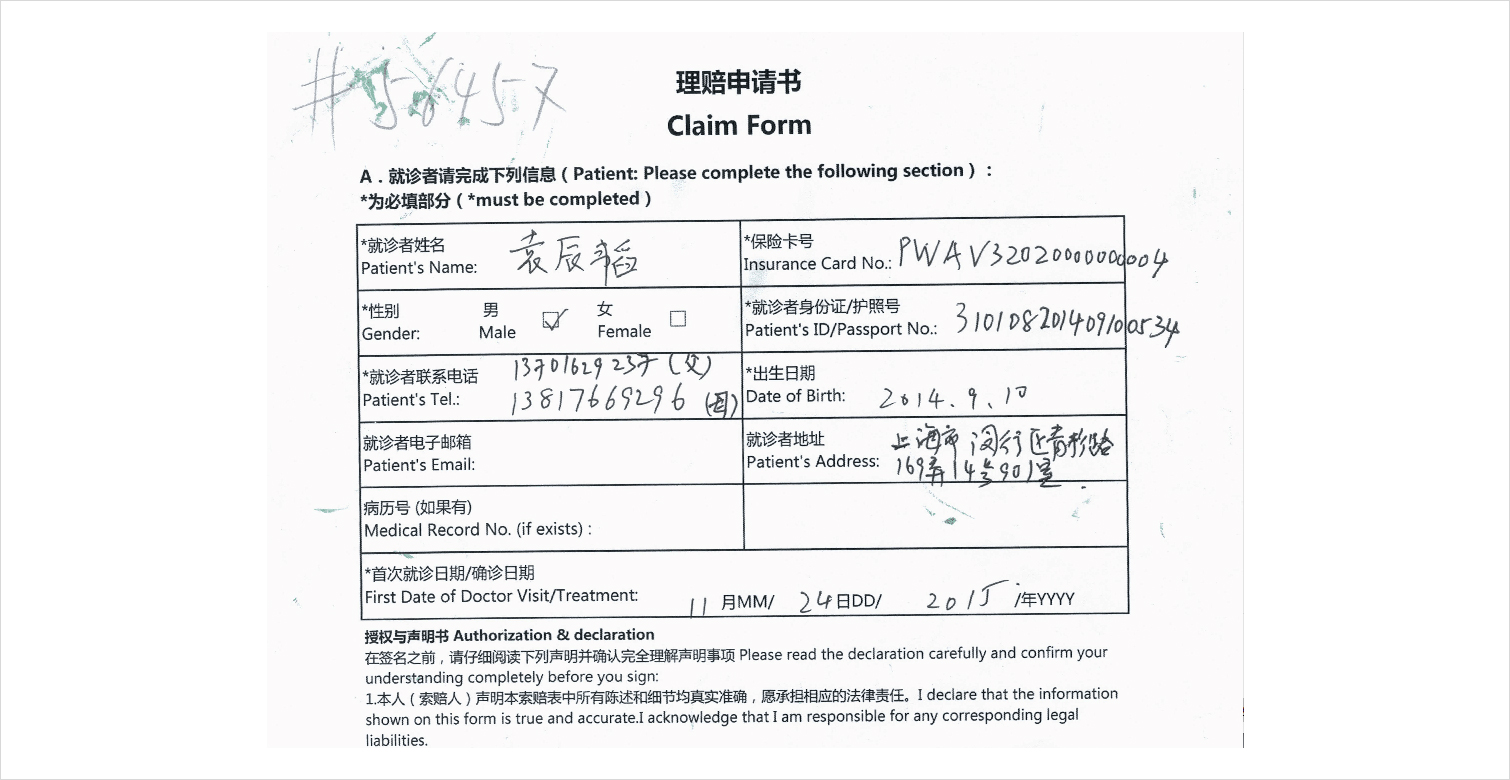 #58457
理赔申请书
Claim Form
A．就诊者请完成下列信息（Patient: Please complete the following section）：
*为必填部分（*must be completed）
*就诊者姓名 袁辰韬
Patient's Name:
*保险卡号
Insurance Card No.: PWAV3202000000004
*性别 男 女
Gender: Male Female
*就诊者身份证/护照号
Patient's ID/Passport No.: 310108201409100534
*就诊者联系电话 13701629237（父）
Patient's Tel.: 13817669296（母）
*出生日期
Date of Birth: 2014.9.10
就诊者电子邮箱
Patient's Email:
就诊者地址 上海市闵行区青杉路
Patient's Address: 169弄14号901室.
病历号 (如果有)
Medical Record No. (if exists)：
*首次就诊日期/确诊日期
First Date of Doctor Visit/Treatment: 11 月MM/ 24日DD/ 2015 /年YYYY
授权与声明书 Authorization & declaration
在签名之前，请仔细阅读下列声明并确认完全理解声明事项 Please read the declaration carefully and confirm your
understanding completely before you sign:
1.本人（索赔人）声明本索赔表中所有陈述和细节均真实准确，愿承担相应的法律责任。I declare that the information
shown on this form is true and accurate.I acknowledge that I am responsible for any corresponding legal
liabilities.